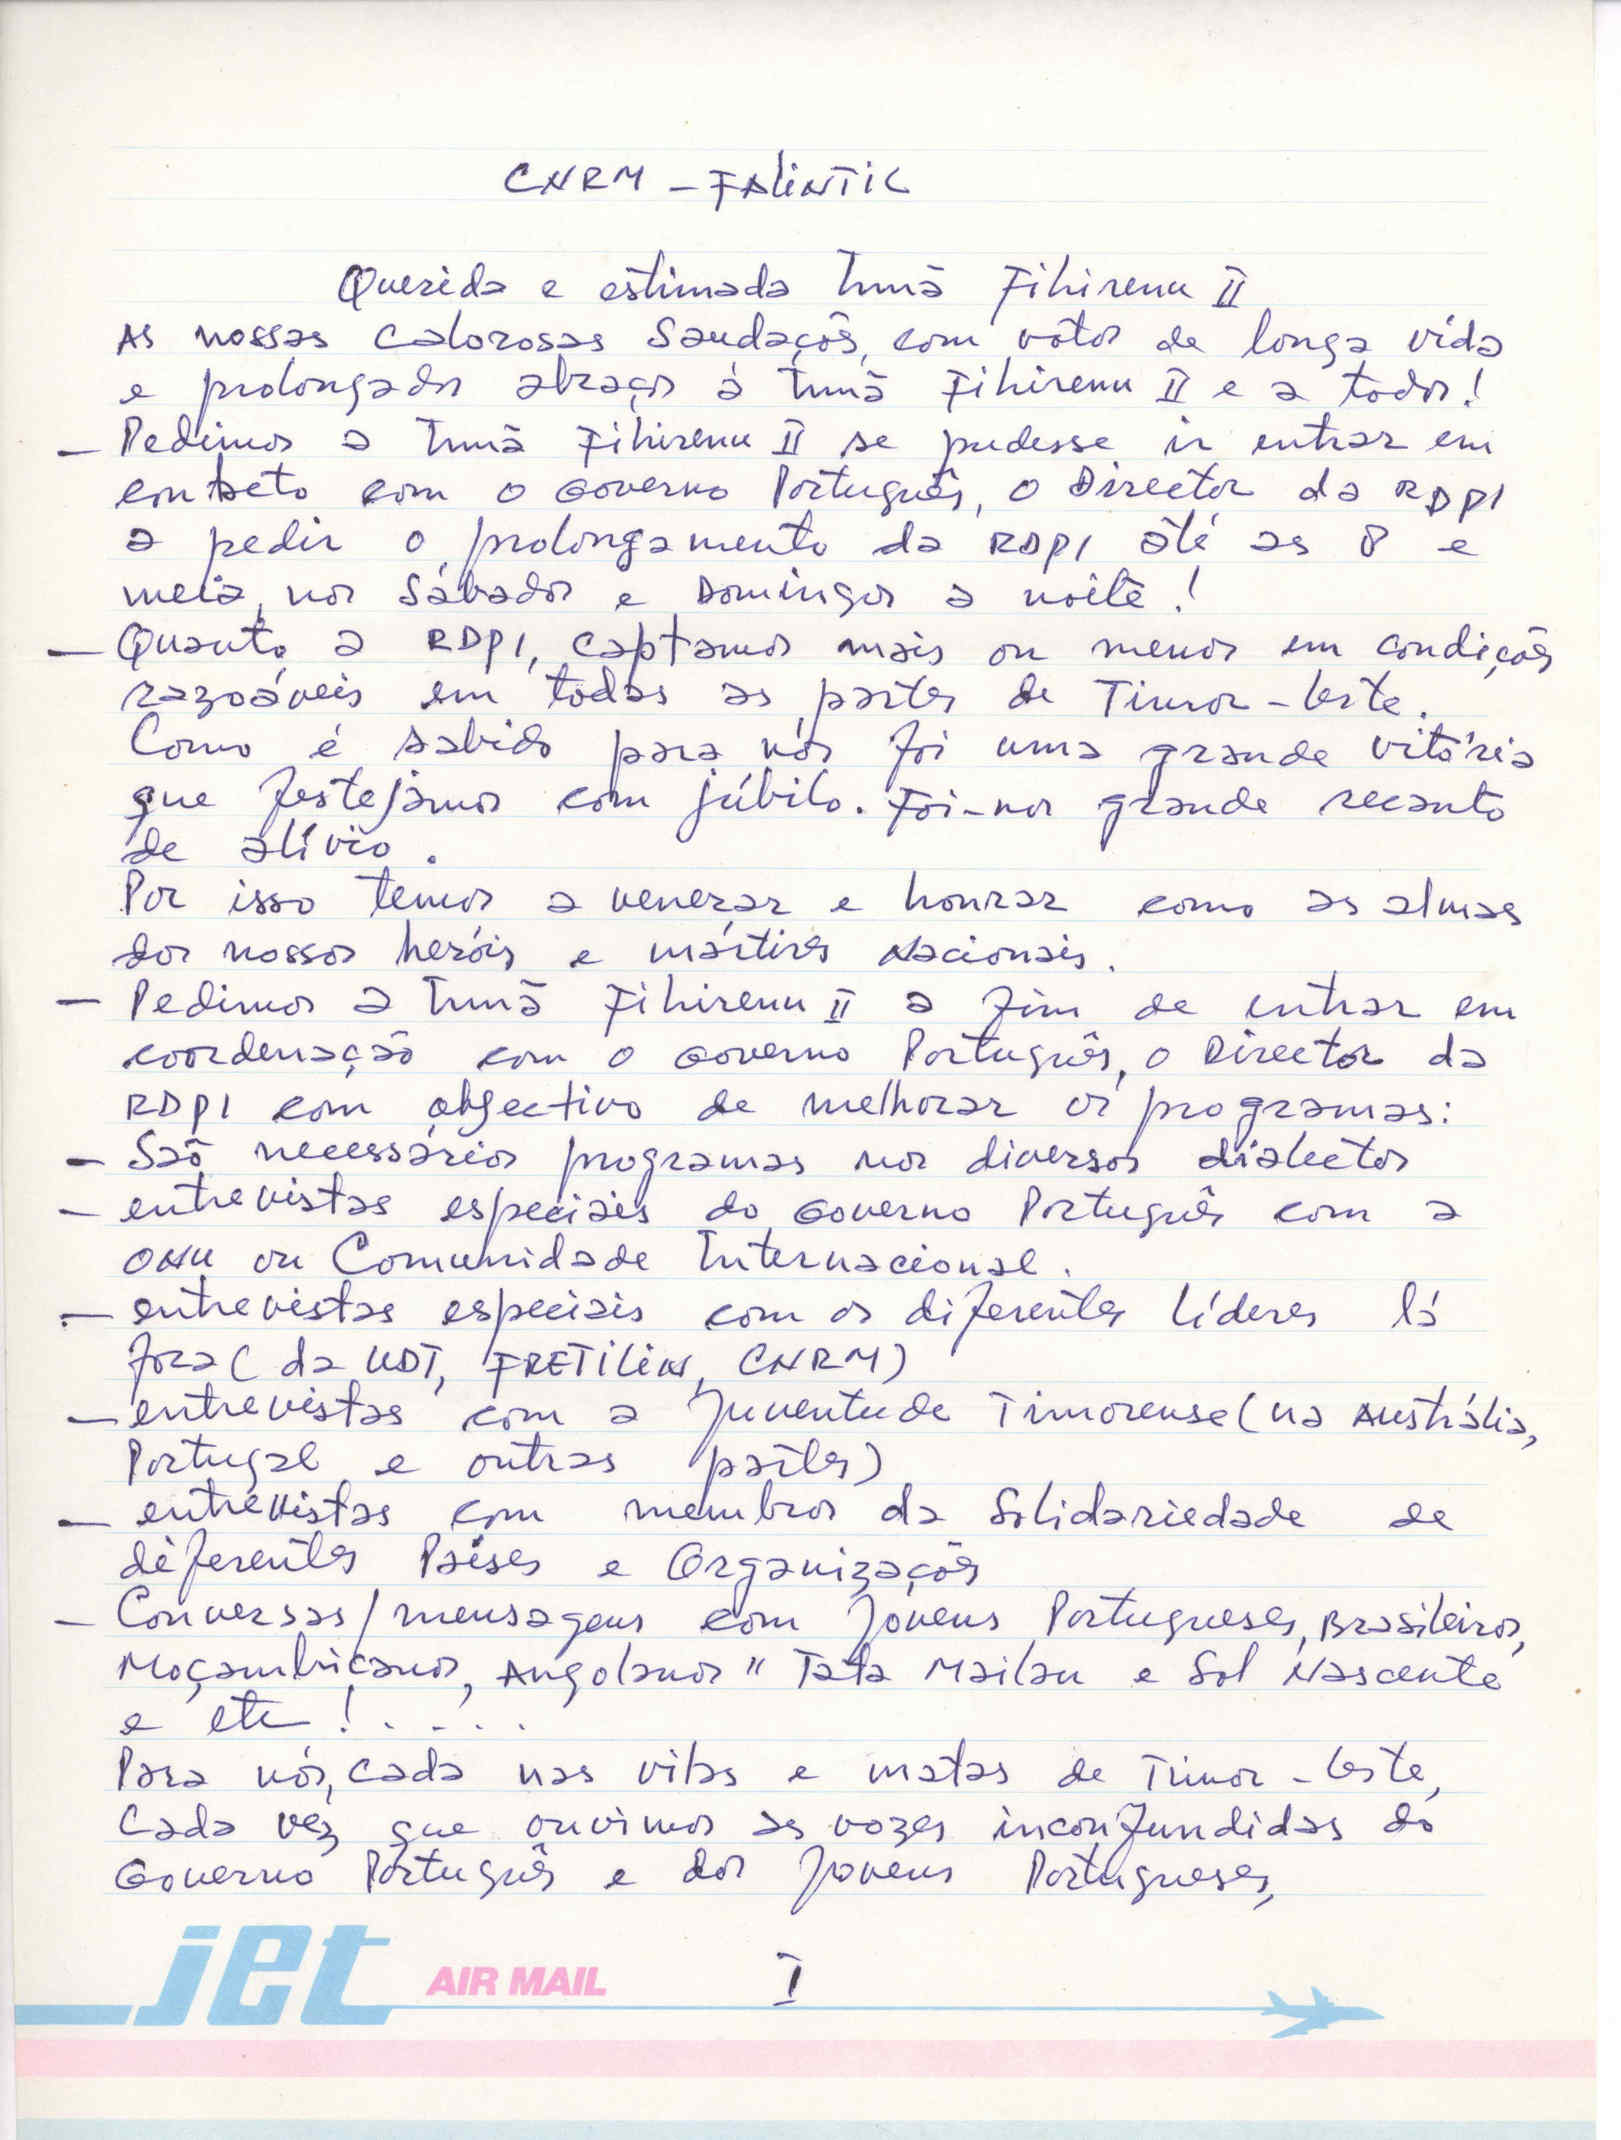 CNRM - FALINTIL
Querida e estimada Irmã Fihirenu II
As nossas calorosas Saudações, com votos de longa vida
e prolongados abraços à Irmã Fihirenu II e a todos!
- Pedimos a Irmã Fihirenu II se pudesse ir entrar em
contacto com o Governo Português, o Director da RDPI
a pedir o prolongamento da RDPI até as 8 e
meia, nos Sábados e Domingos a noite!
- Quanto a RDPI, captamos mais ou menos em condições
razoáveis em todas as partes de Timor-Leste.
Como é sabido para nós foi uma grande vitória
que festejámos com júbilo. Foi-nos grande recanto
de alívio.
Por isso temos a venerar e honrar como as almas
dos nossos heróis e mártires Nacionais.
- Pedimos a Irmã Fihirenu II a fim de entrar em
coordenação com o Governo Português, o Director da
RDPI com objectivo de melhorar os programas:
- Saõ necessários programas nos diversos dialectos
- entrevistas especiais do Governo Português com a
ONU ou Comunidade Internacional.
- entrevistas especiais com os diferentes líderes lá
fora (da UDT, FRETILIN, CNRM)
- entrevistas com a Juventude Timorense (na Austrália,
Portugal e outras partes)
- entrevistas com membros da Solidariedade de
diferentes Países e Organizações
- Conversas/mensagens com Jovens Portugueses, Brasileiros,
Moçambicanos, Angolanos " Tata Mailau e Sol Nascente
e etc!.....
Para nós, cada nas vilas e matas de Timor-Leste,
Cada vez que ouvimos as vozes inconfundidas do
Governo Português e dos Jovens Portugueses,
jet AIR MAIL I